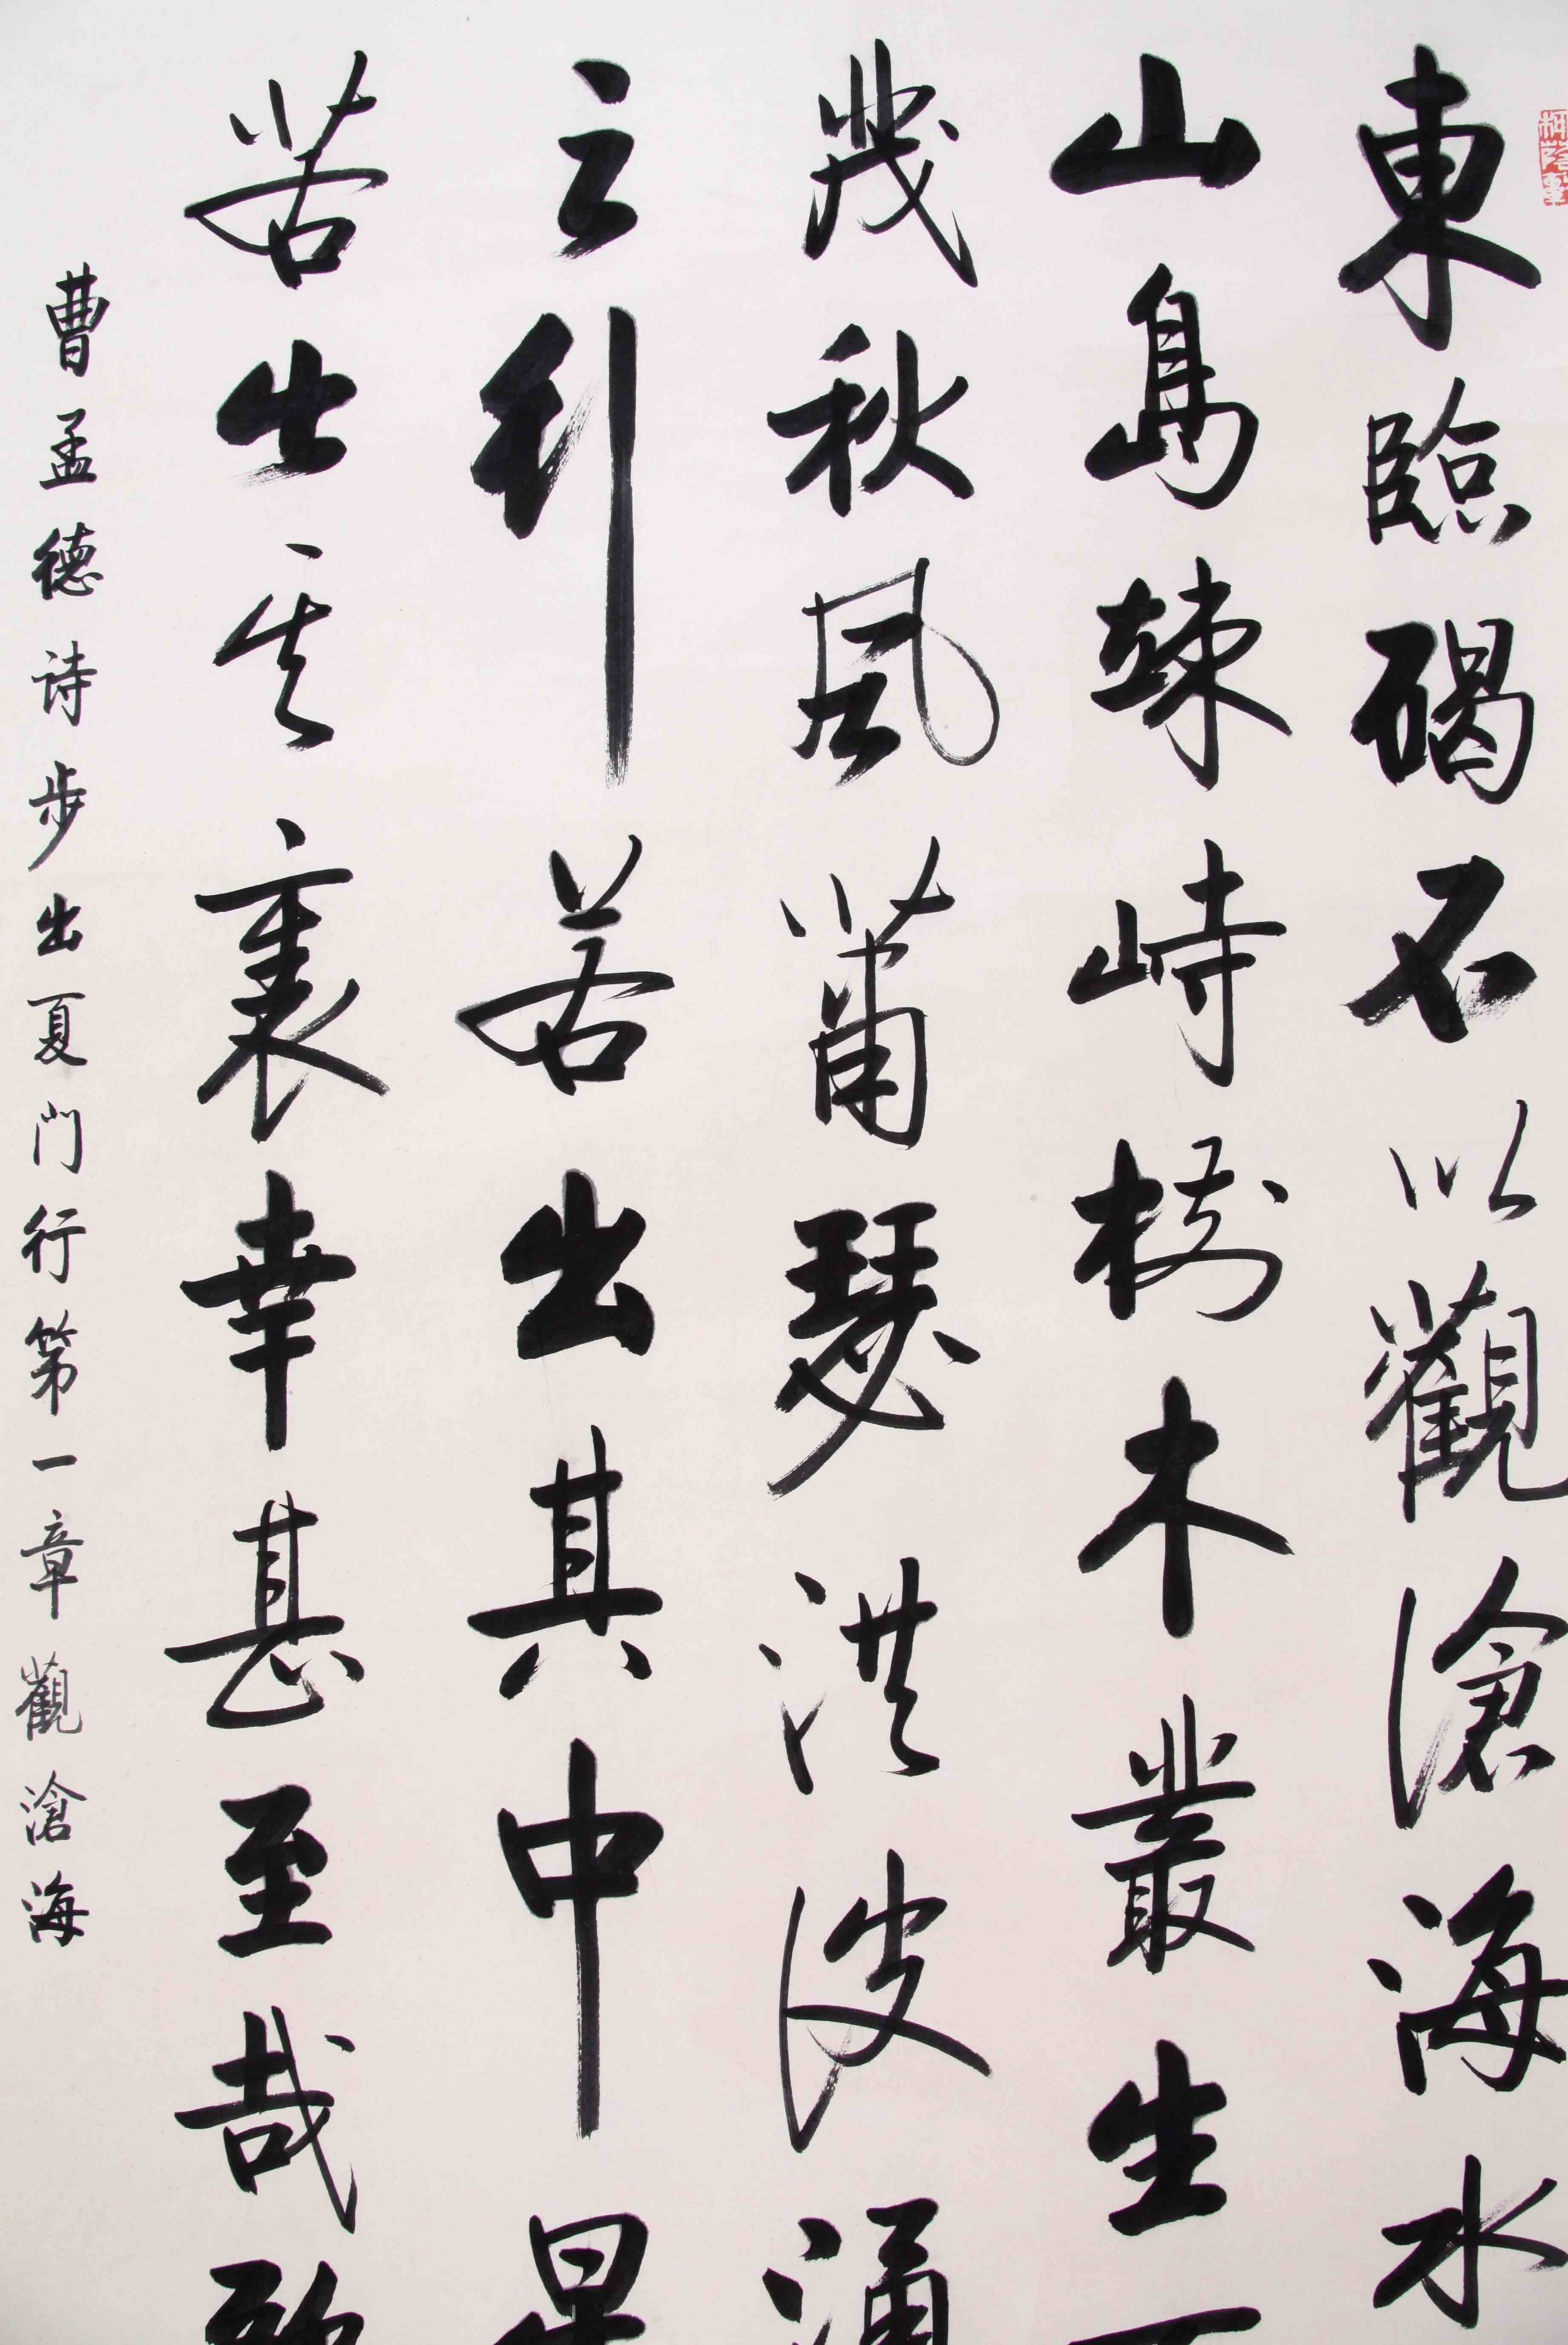 東臨碣石以觀滄海水
山島竦峙樹木叢生
茂秋風蕭瑟洪波涌
之行若出其中星
若出其裏幸甚至哉歌
曹孟德詩步出夏門行第一章觀滄海